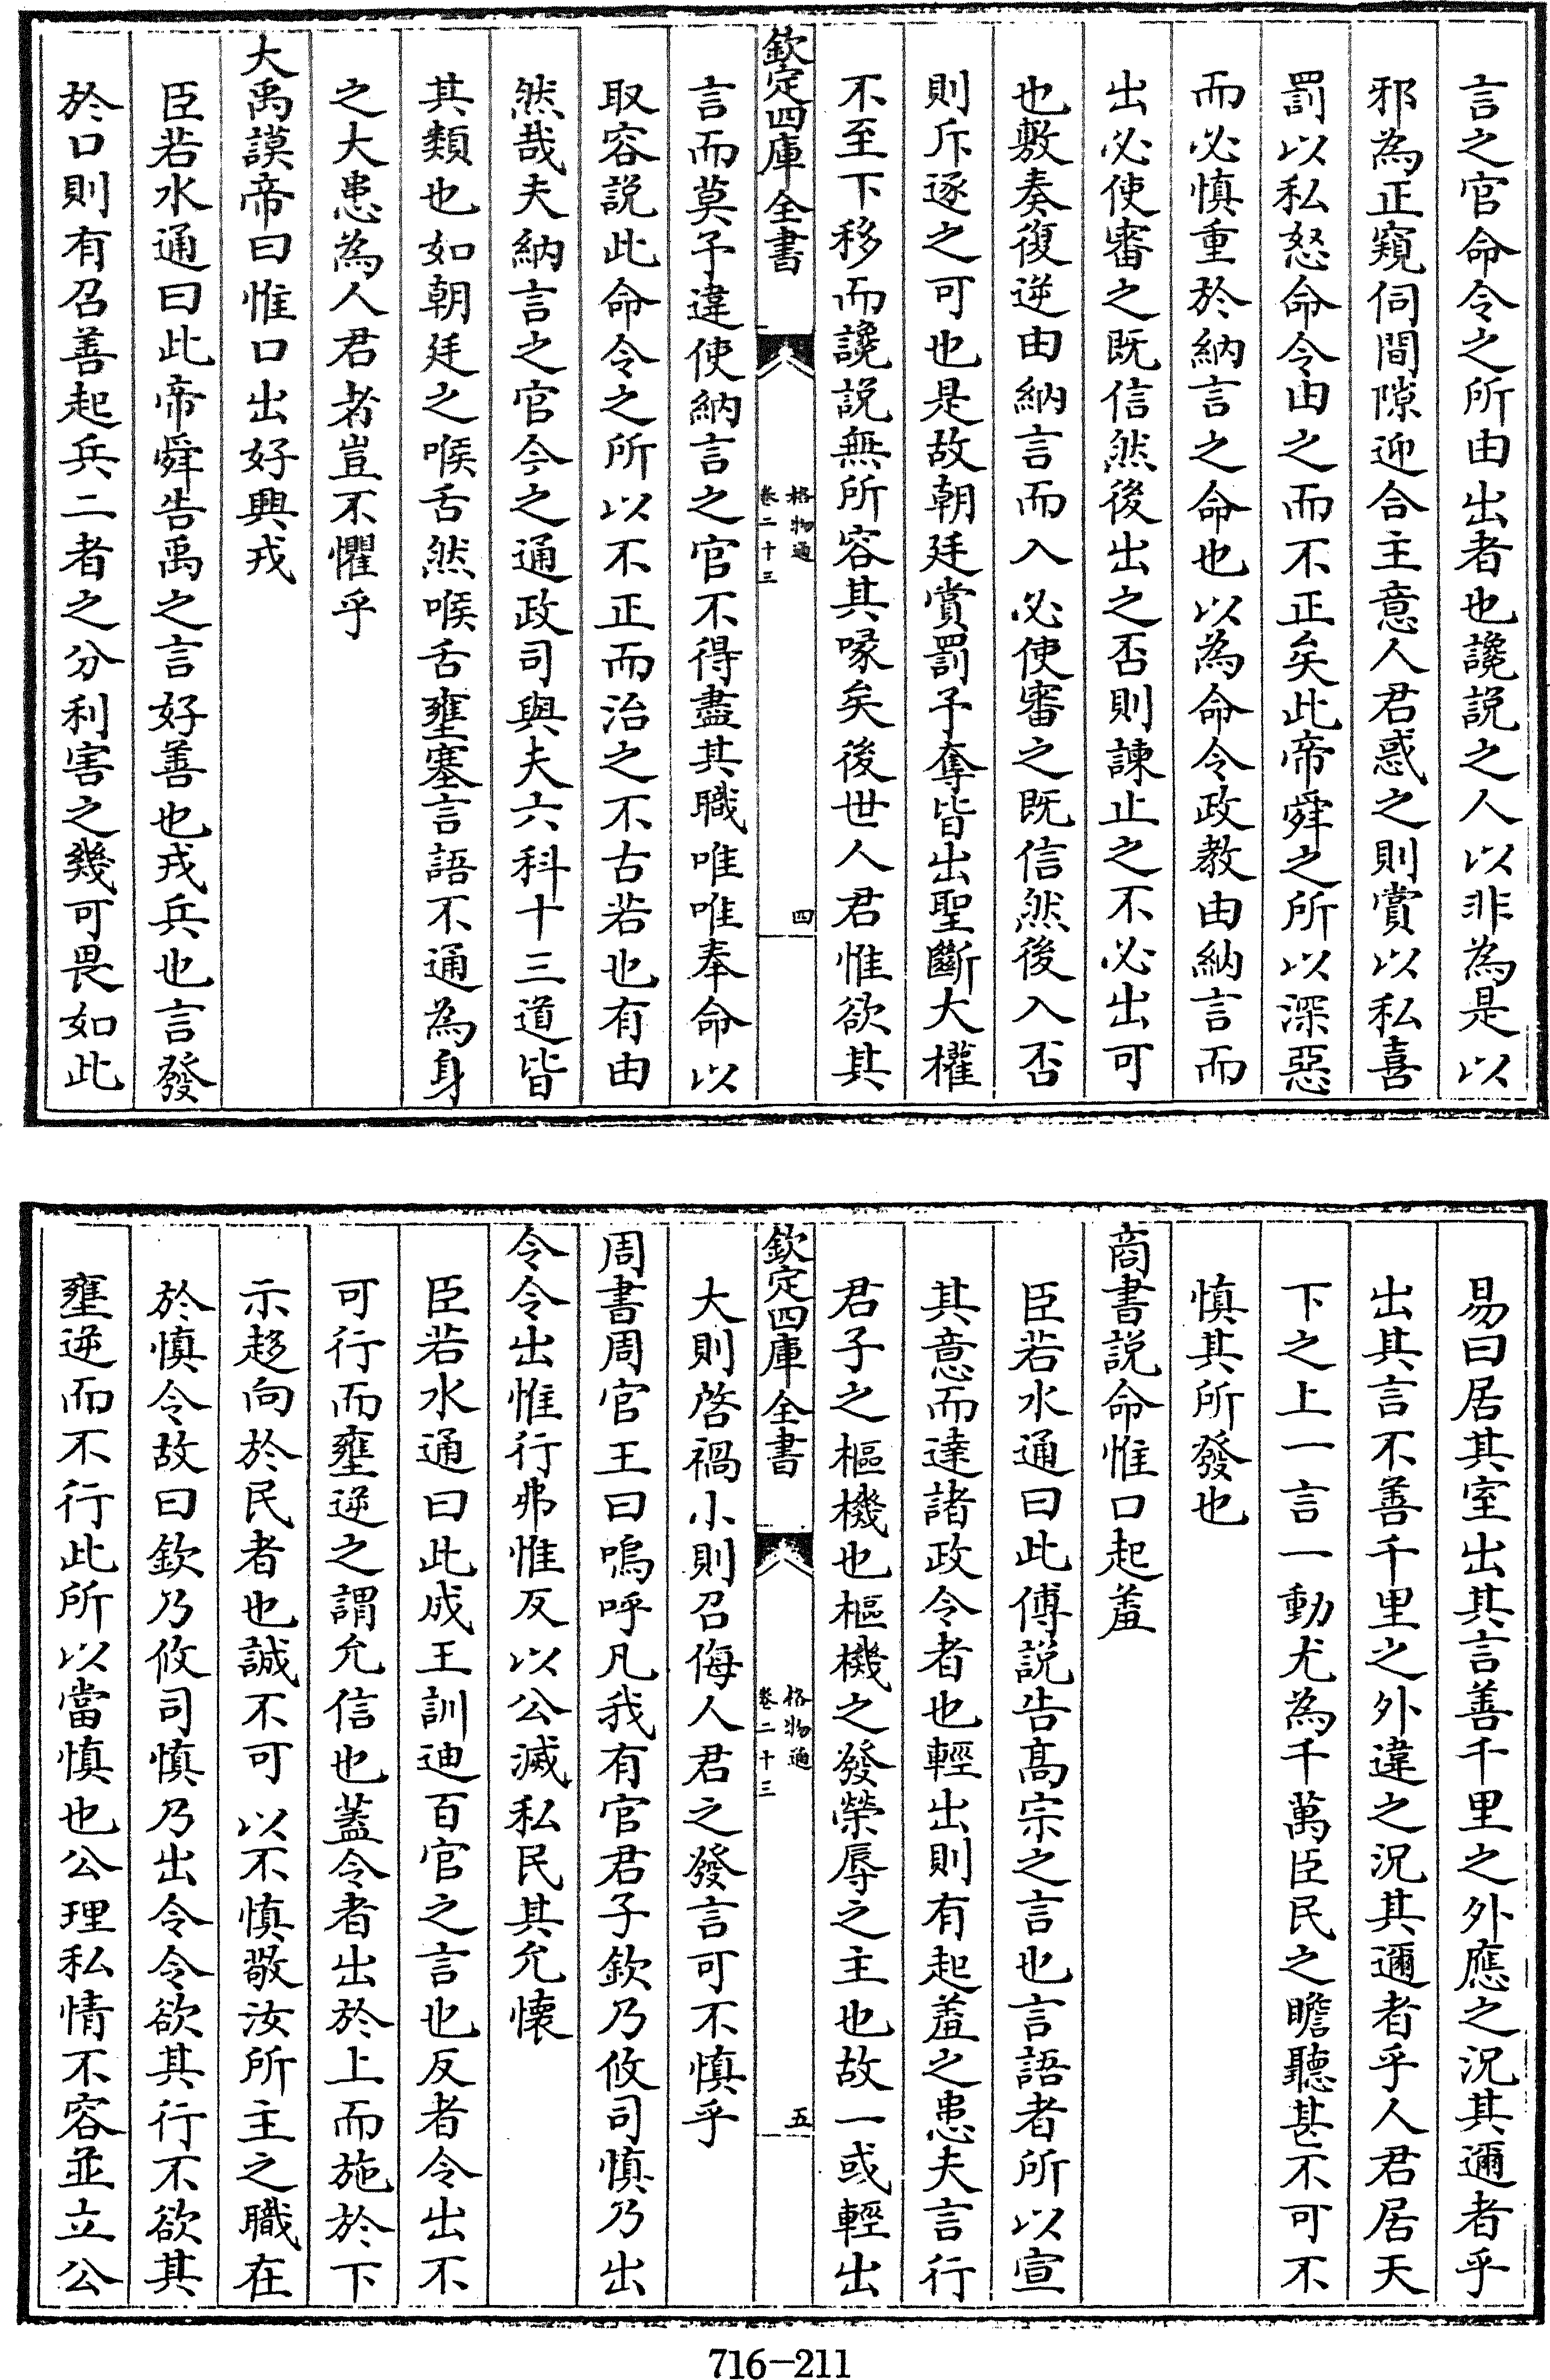 言之官命令之所由出者也讒説之人以非為是以
邪為正窺伺間隙迎合主意人君惑之則賞以私喜
罰以私怒命令由之而不正矣此帝舜之所以深惡
而必慎重於納言之命也以為命令政教由納言而
出必使審之既信然後出之否則諫止之不必出可
也敷奏復逆由納言而入必使審之既信然後入否
則斥逐之可也是故朝廷賞罰予奪皆出聖斷大權
不至下移而讒説無所容其喙矣後世人君惟欲其
欽定四庫全書
格物通
卷二十三
四
言而莫予違使納言之官不得盡其職唯唯奉命以
取容説此命令之所以不正而治之不古若也有由
然哉夫納言之官今之通政司與夫六科十三道皆
其類也如朝廷之喉舌然喉舌壅塞言語不通為身
之大患為人君者豈不懼乎
大禹謨帝曰惟口出好興戎
臣若水通曰此帝舜告禹之言好善也戎兵也言發
於口則有召善起兵二者之分利害之幾可畏如此
易曰居其室出其言善千里之外應之況其邇者乎
出其言不善千里之外違之況其邇者乎人君居天
下之上一言一動尤為千萬臣民之瞻聽甚不可不
慎其所發也
商書説命惟口起羞
臣若水通曰此傅説告髙宗之言也言語者所以宣
其意而達諸政令者也輕出則有起羞之患夫言行
君子之樞機也樞機之發榮辱之主也故一或輕出
欽定四庫全書
格物通
卷二十三
五
大則啓禍小則召侮人君之發言可不慎乎
周書周官王曰嗚呼凡我有官君子欽乃攸司慎乃出
令令出惟行弗惟反以公滅私民其允懐
臣若水通曰此成王訓迪百官之言也反者令出不
可行而壅逆之謂允信也蓋令者出於上而施於下
示趨向於民者也誠不可以不慎敬汝所主之職在
於慎令故曰欽乃攸司慎乃出令令欲其行不欲其
壅逆而不行此所以當慎也公理私情不容並立公
716-211